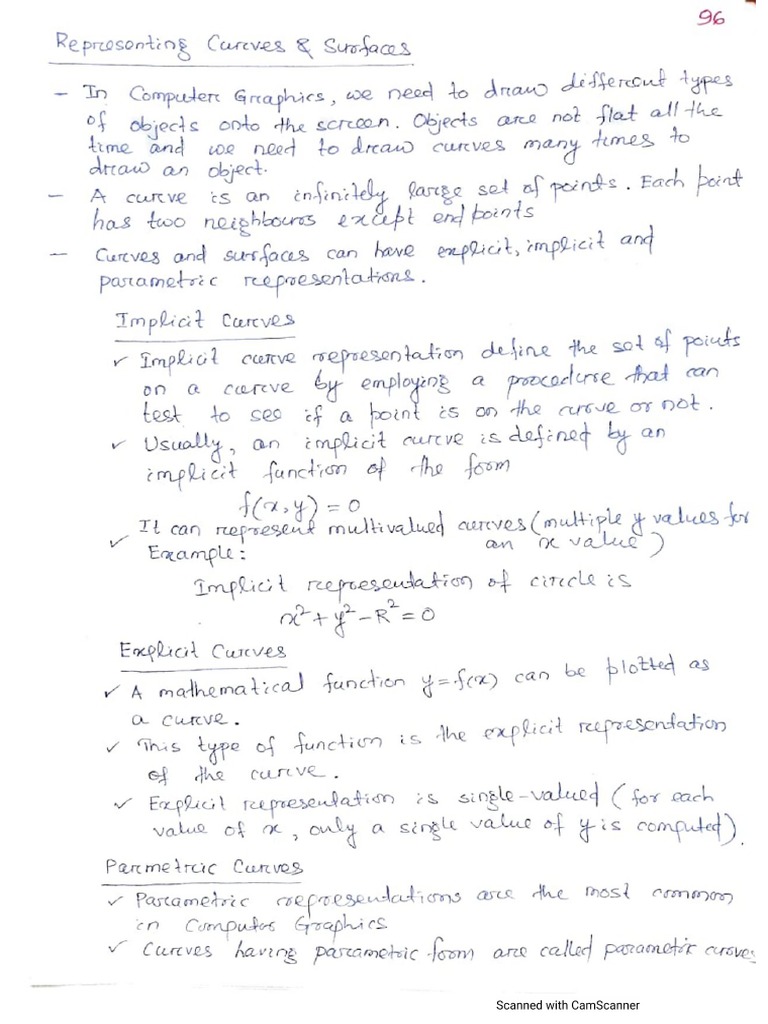 96
Representing Curves & Surfaces
– In Computer Graphics, we need to draw different types
of objects onto the screen. Objects are not flat all the
time and we need to draw curves many times to
draw an object.
– A curve is an infinitely large set of points. Each point
has two neighbours except endpoints
– Curves and surfaces can have explicit, implicit and
parametric representations.
Implicit Curves
✓ Implicit curve representation define the set of points
on a curve by employing a procedure that can
test to see if a point is on the curve or not.
✓ Usually, an implicit curve is defined by an
implicit function of the form
f(x,y) = 0
✓ It can represent multivalued curves (multiple y values for
an x value)
Example:
Implicit representation of circle is
x² + y² – R² = 0
Explicit Curves
✓ A mathematical function y = f(x) can be plotted as
a curve.
✓ This type of function is the explicit representation
of the curve.
✓ Explicit representation is single-valued (for each
value of x, only a single value of y is computed).
Parmetric Curves
✓ Parametric representations are the most common
in Computer Graphics
✓ Curves having parametric form are called parametric curves
Scanned with CamScanner